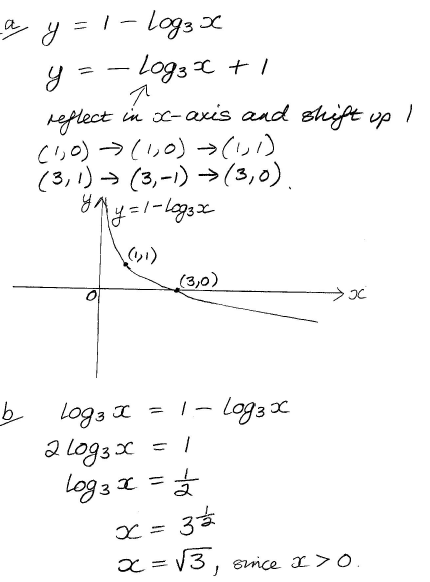 a y = 1 - log₃x
y = - log₃x + 1
reflect in x-axis and shift up 1
(1,0) → (1,0) → (1,1)
(3,1) → (3,-1) → (3,0).
y y = 1-log₃x
(1,1)
(3,0)
0 x
b log₃x = 1 - log₃x
2 log₃x = 1
log₃x = ½
x = 3^½
x = √3, since x > 0.